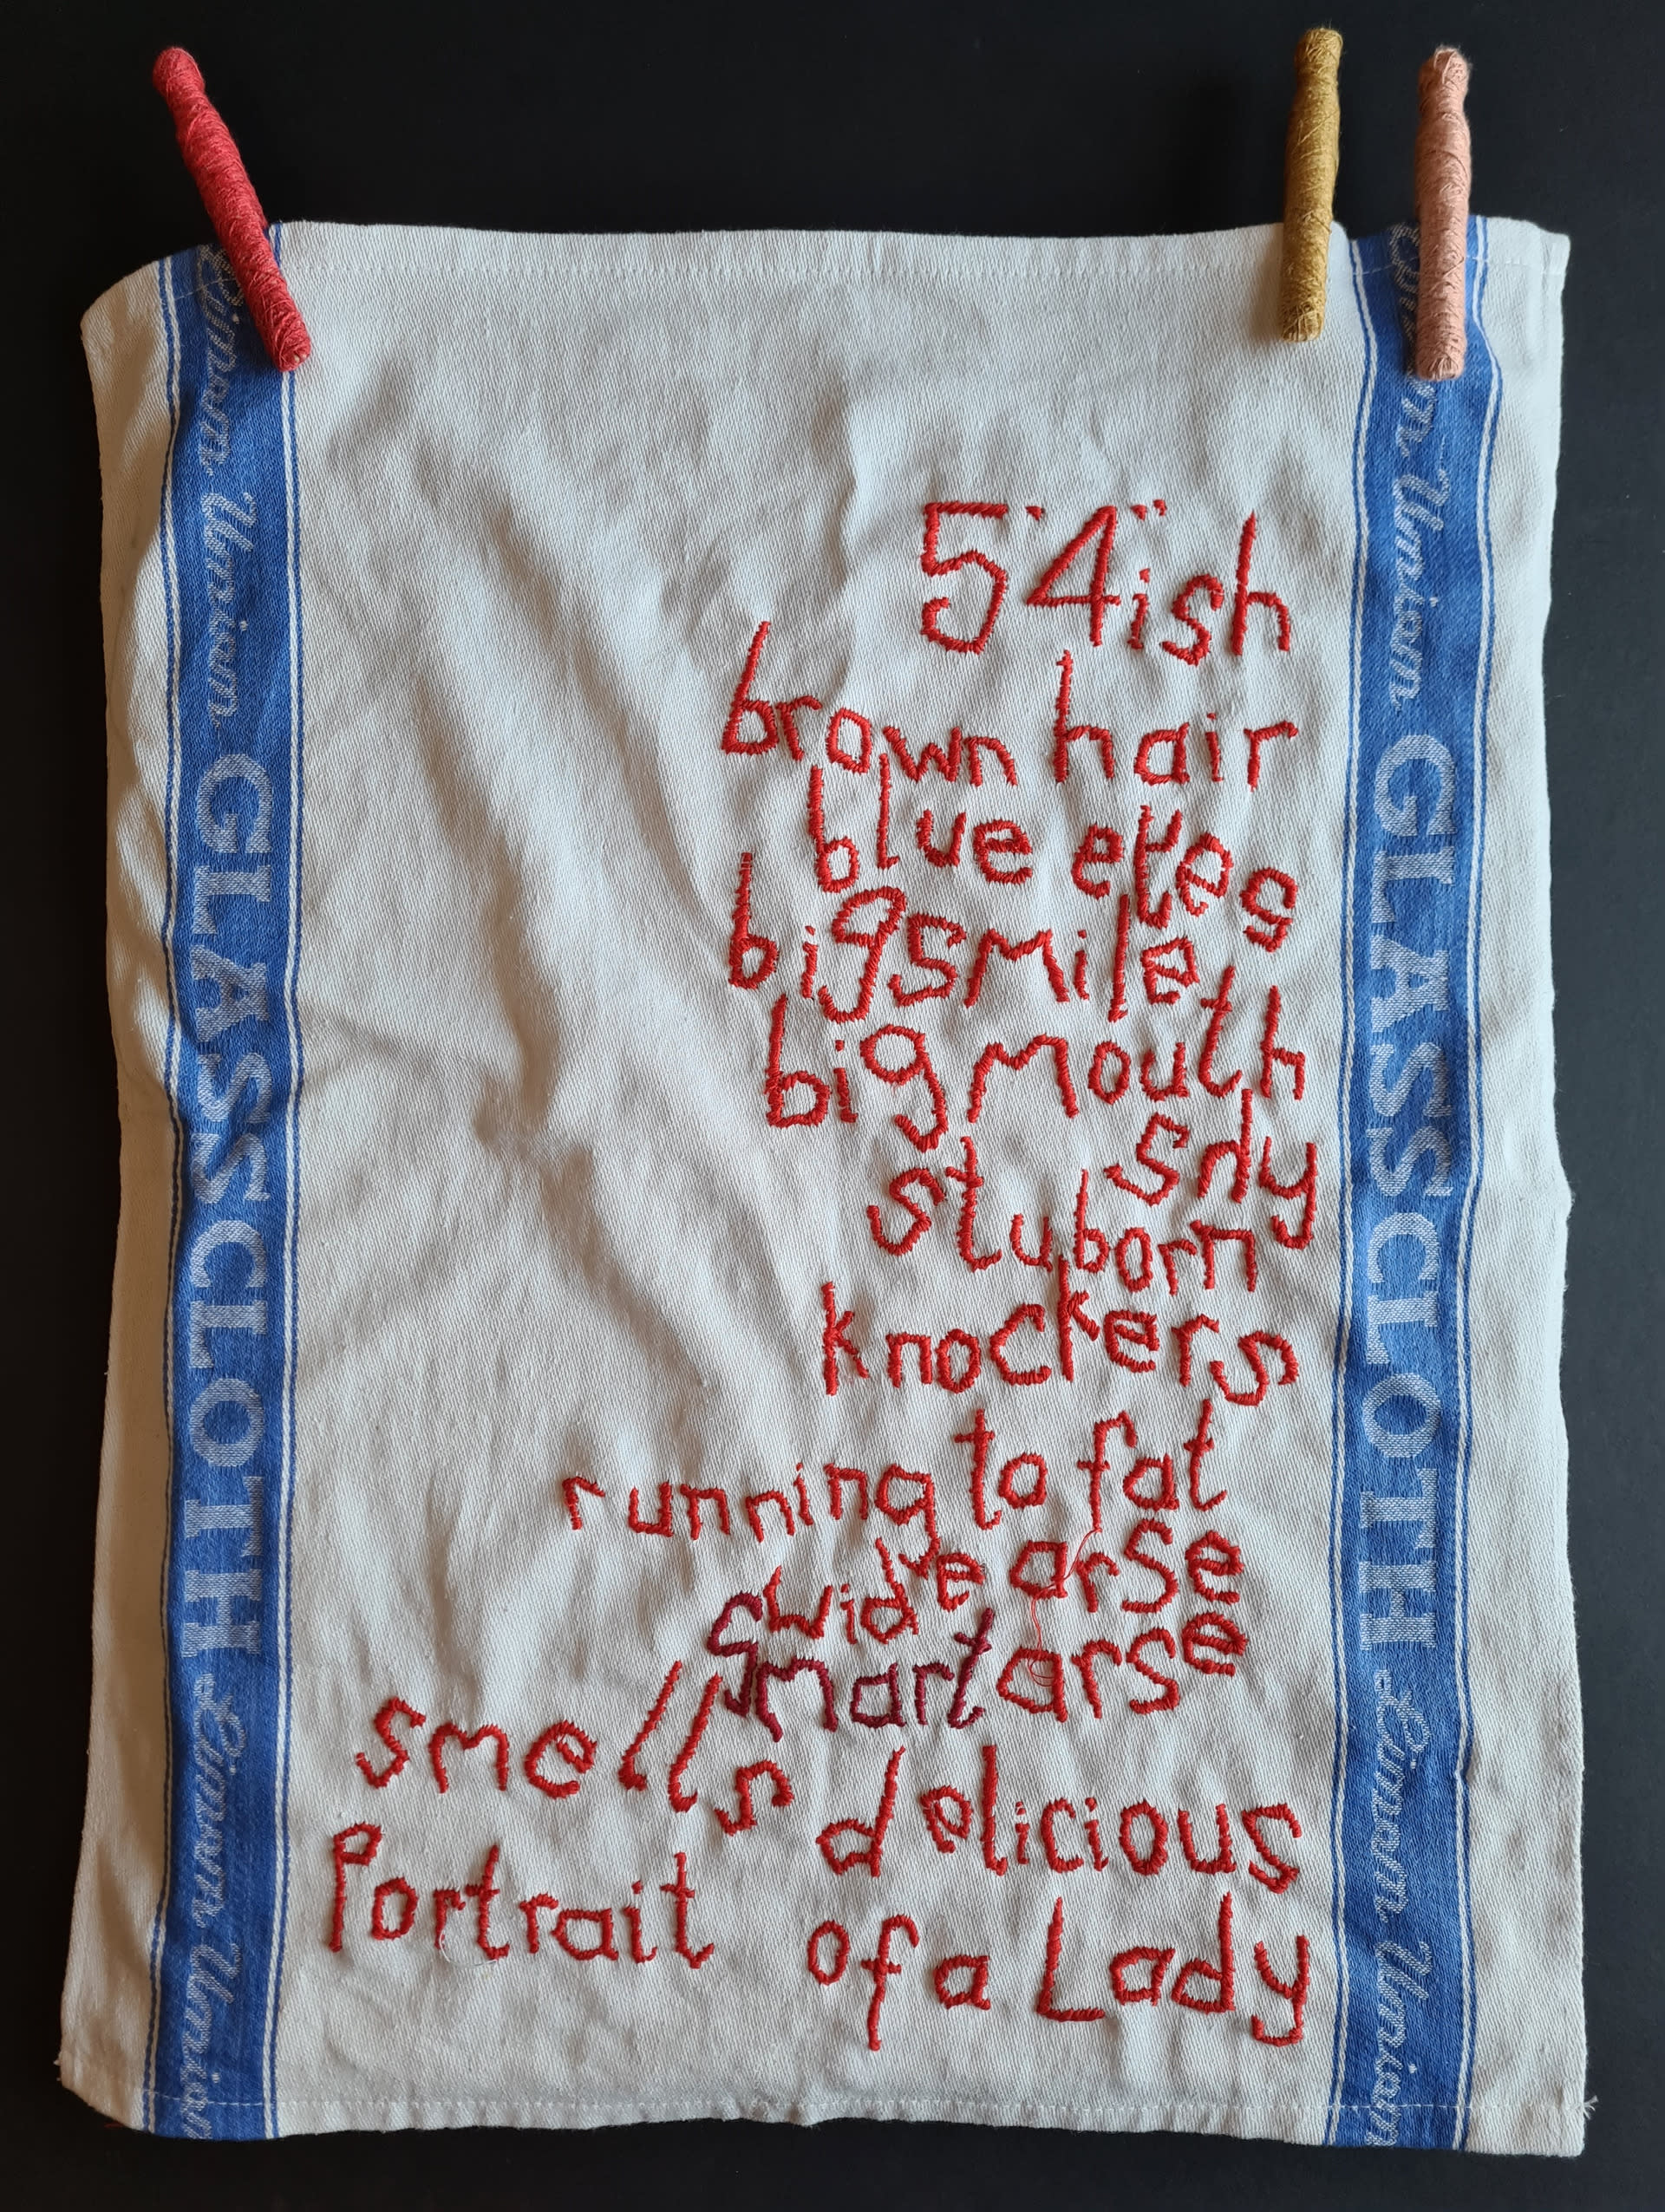 5'4"ish
brown hair
blue eyes
big smile
big mouth
shy
stuborn
knockers
running to fat
wide arse
smart arse
smells delicious
Portrait of a Lady
Linen Union GLASS CLOTH Linen Union
Linen Union GLASS CLOTH Linen Union